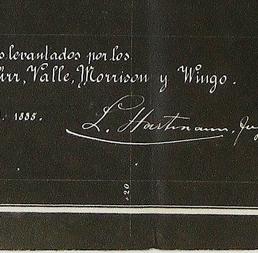 s levantados por los
rr, Valle, Morrison y Wingo.
1888.
L. Hartmann,
20